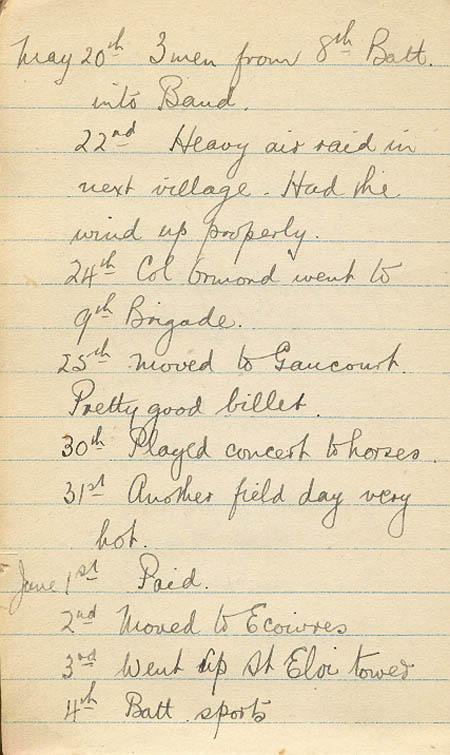 May 20th 3 men from 8th Batt.
into Band.
22nd Heavy air raid in
next village. Had the
wind up properly.
24th Col Ormond went to
9th Brigade.
25th moved to Gaucourt.
Pretty good billet.
30th Played concert to horses.
31st Another field day very
hot.
June 1st Paid.
2nd Moved to Ecoivres
3rd Went up St Eloi tower
4th Batt sports